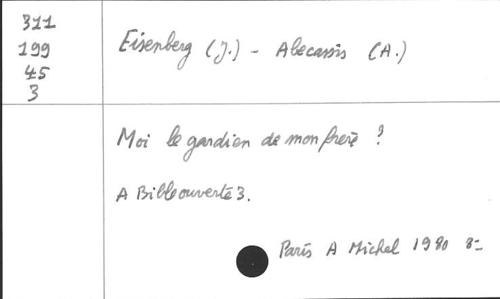 311
199
45
3
Eisenberg (J.) - Abecassis (A.)
Moi le gardien de mon frère ?
A Bible ouverte 3.
Paris A Michel 1980 8=